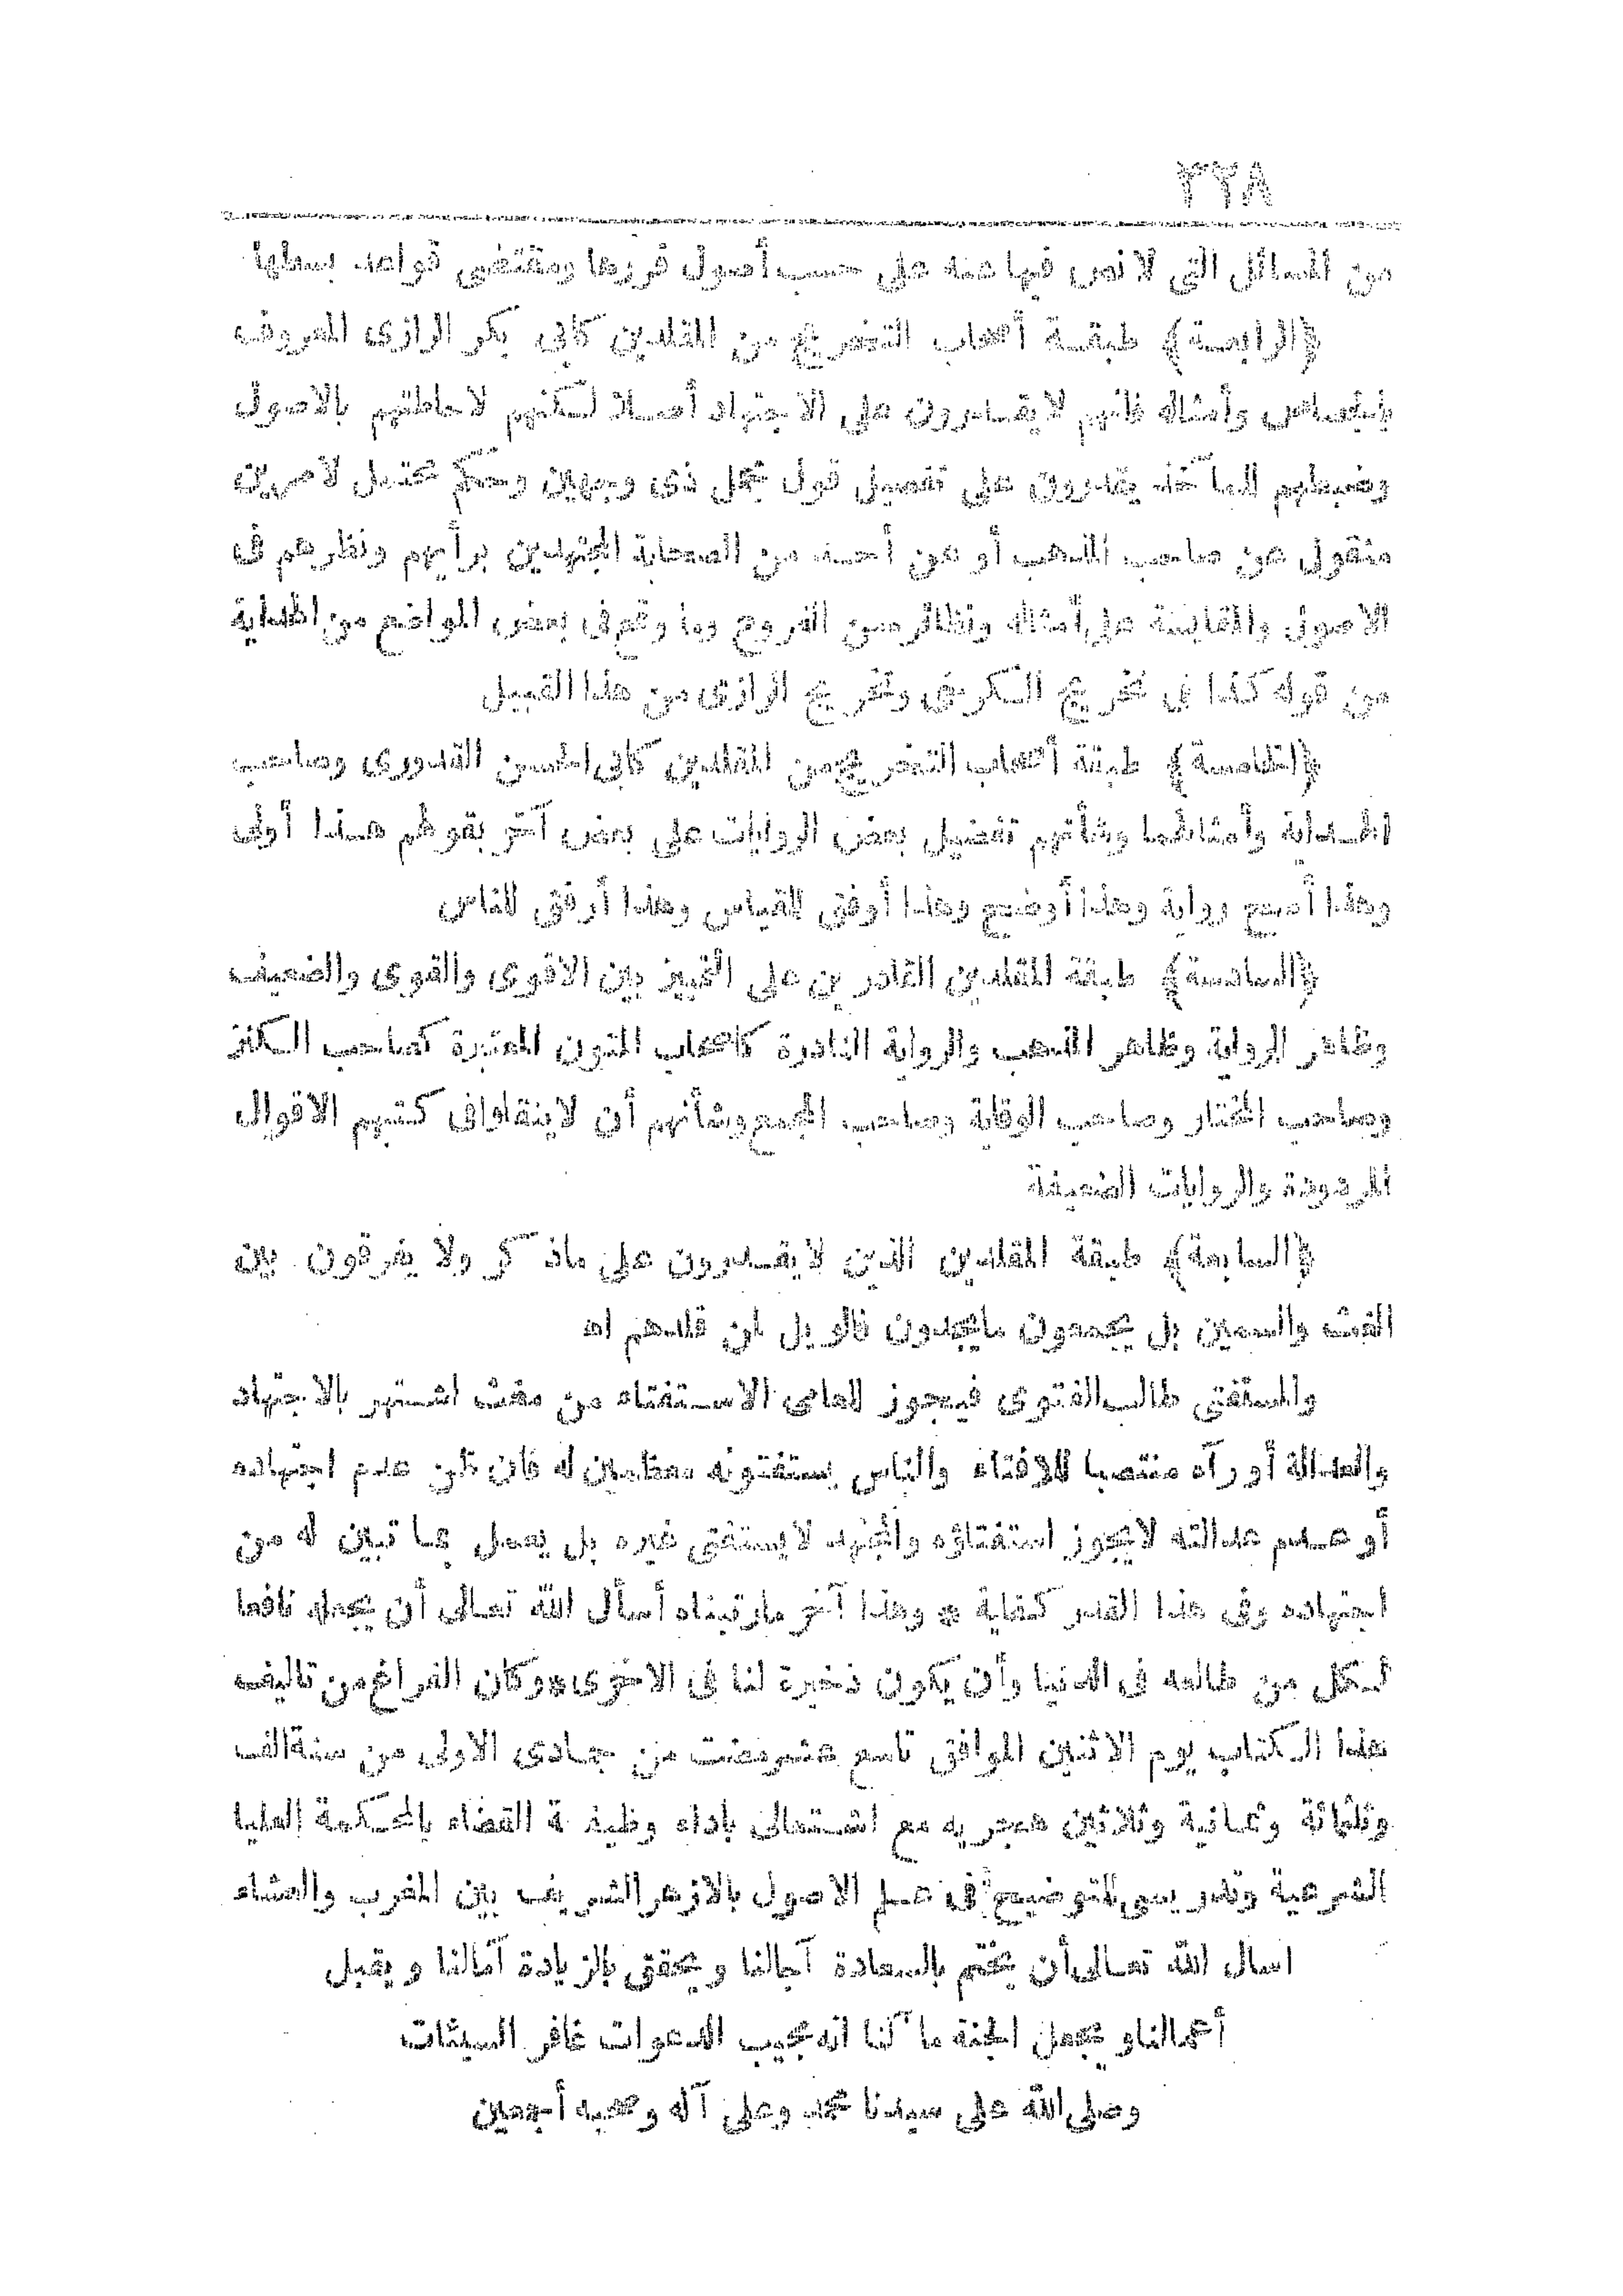 ٣٢٨
من المسائل التى لا نص فيها عنه على حسب أصول قررها ومقتضى قواعد بسطها
﴿الرابعة﴾ طبقة أصحاب التخريج من المقلدين كابى بكر الرازى المعروف
بالجصاص وأمثاله فانهم لا يقدرون على الاجتهاد أصلا لكنهم لاحاطتهم بالاصول
وضبطهم للمآخذ يقدرون على تفصيل قول مجمل ذى وجهين وحكم محتمل لامرين
منقول عن صاحب المذهب أو عن أحد من الصحابة المجتهدين برأيهم ونظرهم فى
الاصول والمقايسة على أمثاله ونظائره من الفروع وما وقع فى بعض المواضع من الهداية
من قوله كذا فى تخريج الكرخى وتخريج الرازى من هذا القبيل
﴿الخامسة﴾ طبقة أصحاب التخريج من المقلدين كابى الحسن القدورى وصاحب
الهداية وأمثالهما وشأنهم تفضيل بعض الروايات على بعض آخر بقولهم هذا أولى
وهذا أصح رواية وهذا أوضح وهذا أوفق للقياس وهذا أرفق للناس
﴿السادسة﴾ طبقة المقلدين القادرين على التمييز بين الاقوى والقوى والضعيف
وظاهر الرواية وظاهر المذهب والرواية النادرة كاصحاب المتون المعتبرة كصاحب الكنز
وصاحب المختار وصاحب الوقاية وصاحب المجمع وشأنهم أن لا ينقلوا فى كتبهم الاقوال
المردودة والروايات الضعيفة
﴿السابعة﴾ طبقة المقلدين الذين لا يقدرون على ماذكر ولا يفرقون بين
الغث والسمين بل يجمعون مايجدون فالويل لمن قلدهم اه
والمستفتى طالب الفتوى فيجوز للعامى الاستفتاء من مفت اشتهر بالاجتهاد
والعدالة أو رآه منتصبا للافتاء والناس يستفتونه معظمين له فان ظن عدم اجتهاده
أو عدم عدالته لا يجوز استفتاؤه والمجتهد لا يستفتى غيره بل يعمل بما تبين له من
اجتهاده وفى هذا القدر كفاية * وهذا آخر مارتبناه أسأل الله تعالى أن يجعله نافعا
لكل من طالعه فى الدنيا وأن يكون ذخيرة لنا فى الاخرى * وكان الفراغ من تاليف
هذا الكتاب يوم الاثنين الموافق تاسع عشر مضت من جمادى الاولى من سنة الف
وثلثمائة وثمانية وثلاثين هجريه مع اشتغالى باداء وظيفة القضاء بالمحكمة العليا
الشرعية وتدريسى للتوضيح فى علم الاصول بالازهر الشريف بين المغرب والعشاء
اسال الله تعالى أن يختم بالسعادة آجالنا ويحقق بالزيادة آمالنا ويقبل
أعمالنا ويجعل الجنة مآلنا انه مجيب الدعوات غافر السيئات
وصلى الله على سيدنا محمد وعلى آله وصحبه أجمعين